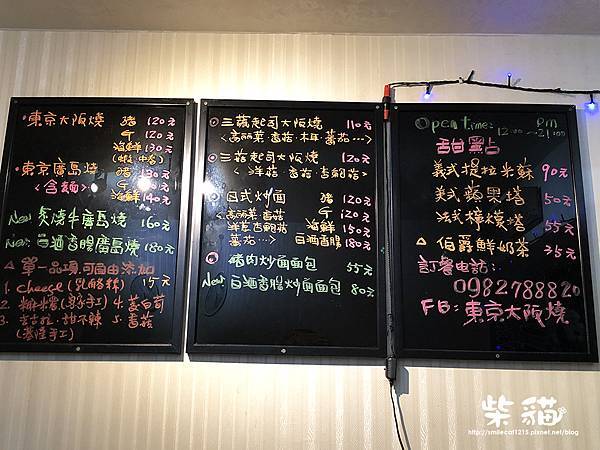 東京大阪燒 豬 120元
牛 120元
海鮮 130元
東京廣島燒 豬 130元
<含麵> 牛 130元
海鮮 140元
New 炙燒牛廣島燒 160元
New 白酒香腸廣島燒 180元
△ 單一品項,可自由添加
1. cheese (乳酪絲) 15元
4. 茭白筍
5. 番茄
三菇起司大阪燒 110元
<高麗菜·香菇·木耳·蕃茄…>
三菇起司大阪燒 120元
日式炒麵 豬 120元
<高麗菜·香菇 牛 120元
洋蔥吉鮑菇 海鮮 150元
蕃茄…> 白酒香腸 180元
豬肉炒麵麵包 55元
New 白酒香腸炒麵麵包 80元
Open time: pm
12:00~21:00
甜點
義式提拉米蘇 90元
美式蘋果塔 50元
法式檸檬塔 55元
△ 伯爵鮮奶茶 35元
訂餐電話:
0982788820
FB: 東京大阪燒
柴貓
http://smilecat1215.pixnet.net/blog